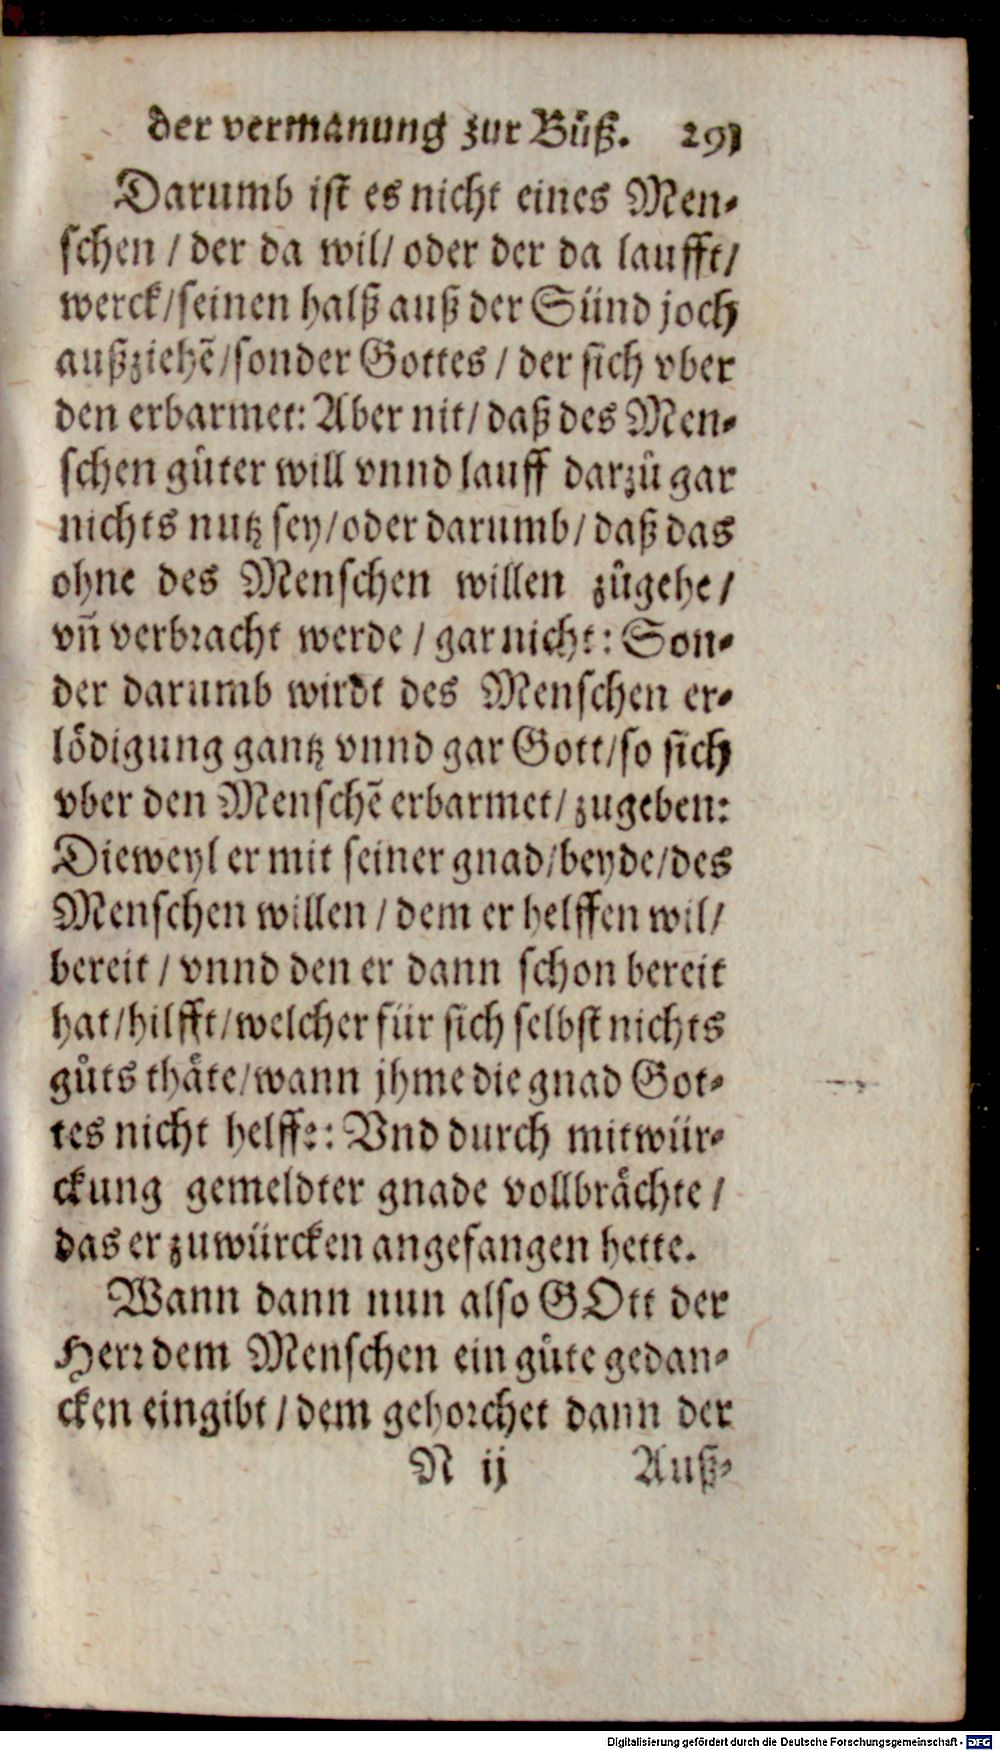 der vermanung zur Bůß. 291
Darumb ist es nicht eines Men-
schen / der da wil/ oder der da laufft/
werck/seinen halß auß der Sünd joch
außziehē/sonder Gottes / der sich vber
den erbarmet: Aber nit/ daß des Men-
schen gůter will vnnd lauff darzů gar
nichts nutz sey/oder darumb/ daß das
ohne des Menschen willen zůgehe/
vn̄ verbracht werde / gar nicht: Son-
der darumb wirdt des Menschen er-
lödigung gantz vnnd gar Gott/so sich
vber den Menschē erbarmet/ zugeben:
Dieweyl er mit seiner gnad/beyde/des
Menschen willen / dem er helffen wil/
bereit / vnnd den er dann schon bereit
hat/hilfft/welcher für sich selbst nichts
gůts thåte/wann jhme die gnad Got-
tes nicht helffe: Vnd durch mitwür-
ckung gemeldter gnade vollbråchte /
das er zuwürcken angefangen hette.
Wann dann nun also GOtt der
Herr dem Menschen ein gůte gedan-
cken eingibt / dem gehorchet dann der
N ij Auß-
Digitalisierung gefördert durch die Deutsche Forschungsgemeinschaft - DFG